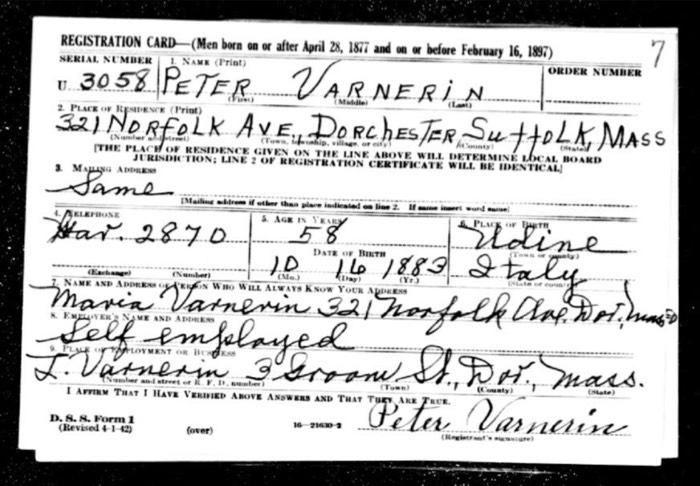 7
REGISTRATION CARD—(Men born on or after April 28, 1877 and on or before February 16, 1897)
SERIAL NUMBER 1. NAME (Print) ORDER NUMBER
U 3058 PETER VARNERIN
(First) (Middle) (Last)
2. PLACE OF RESIDENCE (Print)
321 NORFOLK AVE., DORCHESTER, SUFFOLK, MASS
(Number and street) (Town, township, village, or city) (County) (State)
[THE PLACE OF RESIDENCE GIVEN ON THE LINE ABOVE WILL DETERMINE LOCAL BOARD
JURISDICTION; LINE 2 OF REGISTRATION CERTIFICATE WILL BE IDENTICAL]
3. MAILING ADDRESS
Same
[Mailing address if other than place indicated on line 2. If same insert word same]
4. TELEPHONE 5. AGE IN YEARS 6. PLACE OF BIRTH
Har. 2870 58 Udine
DATE OF BIRTH (Town or county)
10 16 1883 Italy
(Exchange) (Number) (Mo.) (Day) (Yr.) (State or country)
7. NAME AND ADDRESS OF PERSON WHO WILL ALWAYS KNOW YOUR ADDRESS
Maria Varnerin 321 Norfolk Ave. Dor., Mass
8. EMPLOYER'S NAME AND ADDRESS
Self employed
9. PLACE OF EMPLOYMENT OR BUSINESS
Varnerin 3 Groom St., Dor., Mass.
(Number and street or R. F. D. number) (Town) (County) (State)
I AFFIRM THAT I HAVE VERIFIED ABOVE ANSWERS AND THAT THEY ARE TRUE.
D. S. S. Form 1
(Revised 4-1-42) (over) 16—21630-2 Peter Varnerin
(Registrant's signature)